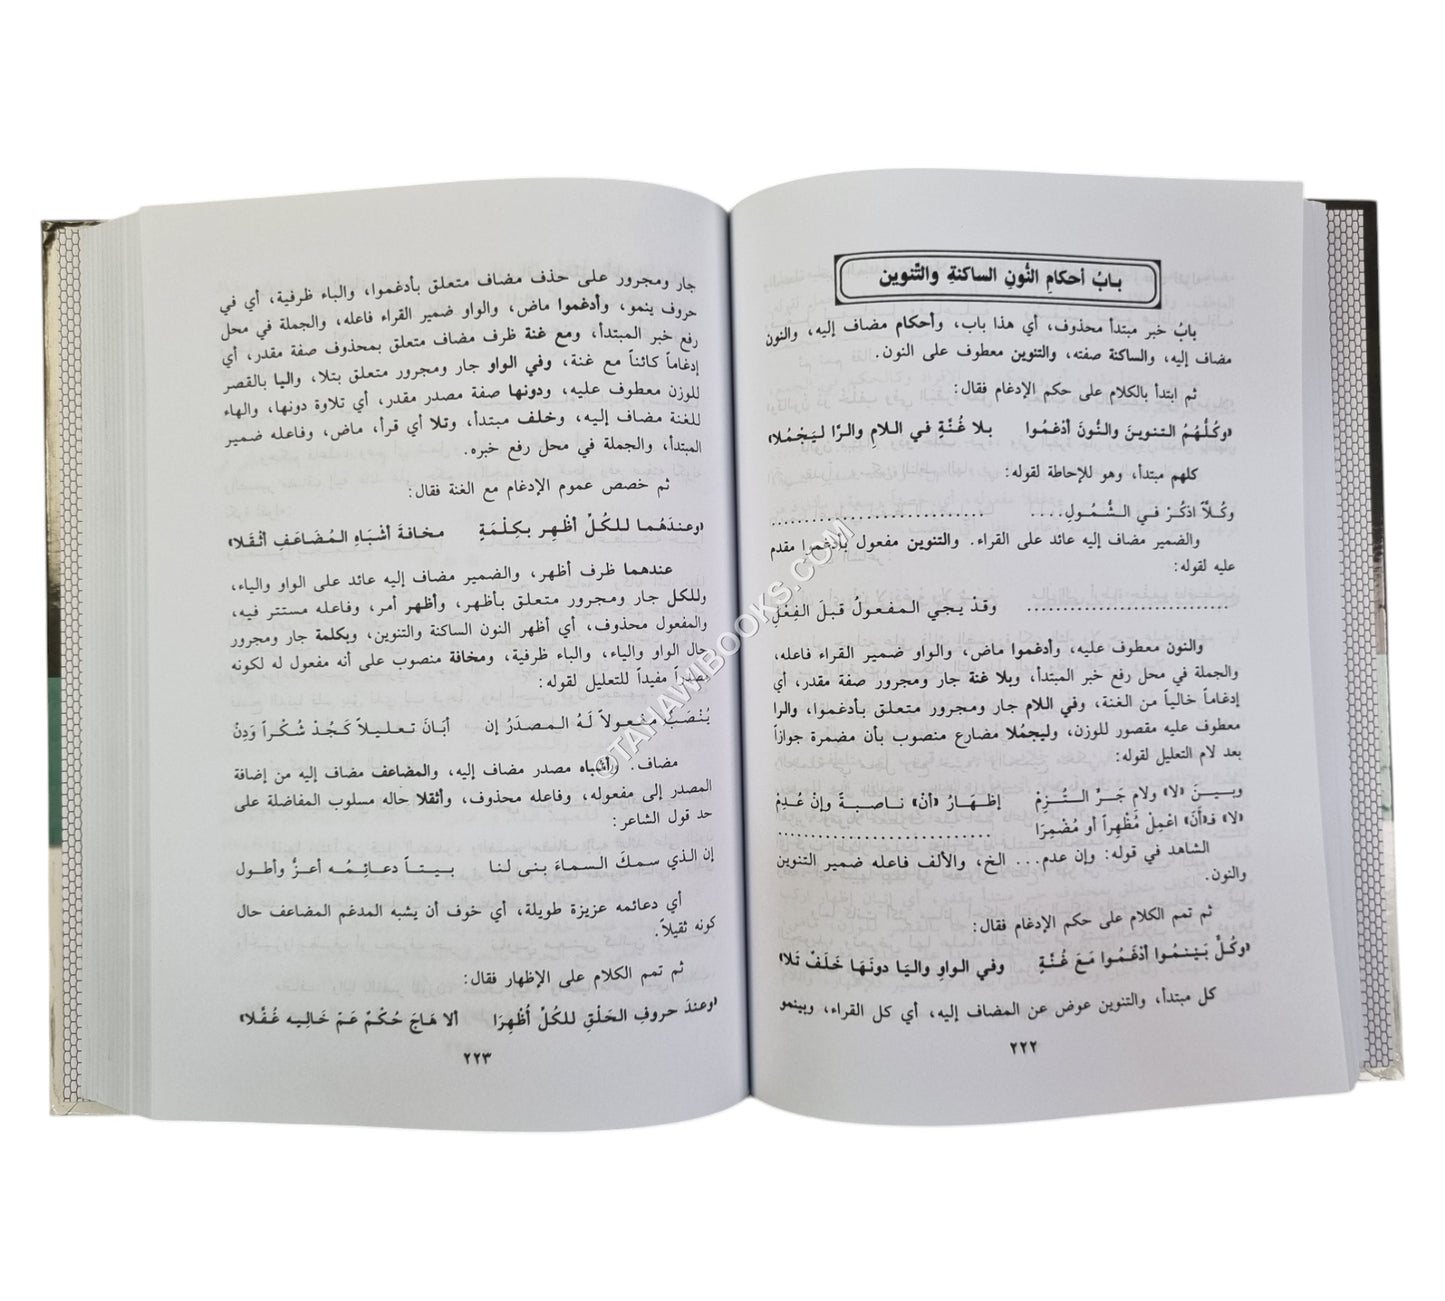 بـابُ أحكامِ النُّونِ الساكنةِ والتَّنوين
بابُ خبر مبتدأ محذوف، أي هذا باب، وأحكام مضاف إليه، والنون
مضاف إليه، والساكنة صفته، والتنوين معطوف على النون.
ثم ابتدأ بالكلام على حكم الإدغام فقال:
«وكُلُّهُمُ التنوينَ والنُّونَ أدْغَمُوا بلا غُنَّةٍ في اللامِ والرَّا ليَجْمُلا»
كلهم مبتدأ، وهو للإحاطة لقوله:
وكُلاًّ اذكُرْ في الشُّمُولِ.... ............................
والضمير مضاف إليه عائد على القراء. والتنوين مفعول بأدغموا مقدم
عليه لقوله:
............................ وقدْ يجي المفعولُ قبلَ الفِعْلِ
والنون معطوف عليه، وأدغموا ماض، والواو ضمير القراء فاعله،
والجملة في محل رفع خبر المبتدأ، وبلا غنة جار ومجرور صفة مقدر، أي
إدغاماً خالياً من الغنة، وفي اللام جار ومجرور متعلق بأدغموا، والرا
معطوف عليه مقصور للوزن، وليجمُلا مضارع منصوب بأن مضمرة جوازاً
بعد لام التعليل لقوله:
وبـيـنَ «لا» ولامِ جَـرٍّ الـتُـزِمْ إظـهَـارُ «أنْ» نـاصـبـةً وإنْ عُـدِمْ
«لا» فـ«أنَ» اعْمِلْ مُظْهِراً أو مُضْمِرَا ............................
الشاهد في قوله: وإن عدم... الخ، والألف فاعله ضمير التنوين
والنون.
ثم تمم الكلام على حكم الإدغام فقال:
«وكُلٌّ بَيْنمُوا أدْغَمُوا مَعَ غُنَّةٍ وفي الواوِ واليَا دونَهَا خَلَفٌ تَلا»
كل مبتدأ، والتنوين عوض عن المضاف إليه، أي كل القراء، وبينمو
٢٢٢
جار ومجرور على حذف مضاف متعلق بأدغموا، والباء ظرفية، أي في
حروف ينمو، وأدغموا ماض، والواو ضمير القراء فاعله، والجملة في محل
رفع خبر المبتدأ، ومع غنة ظرف مضاف متعلق بمحذوف صفة مقدر، أي
إدغاماً كائناً مع غنة، وفي الواو جار ومجرور متعلق بتلا، واليا بالقصر
للوزن معطوف عليه، ودونها صفة مصدر مقدر، أي تلاوة دونها، والهاء
للغنة مضاف إليه، وخلف مبتدأ، وتلا أي قرأ، ماض، وفاعله ضمير
المبتدأ، والجملة في محل رفع خبره.
ثم خصص عموم الإدغام مع الغنة فقال:
«وعندَهُما للكُلِّ أظْهِر بكِلْمَةٍ مخافةَ أشْبَاهِ المُضَاعَفِ أثقَلا»
عندهما ظرف أظهر، والضمير مضاف إليه عائد على الواو والياء،
وللكل جار ومجرور متعلق بأظهر، وأظهر أمر، وفاعله مستتر فيه،
والمفعول محذوف، أي أظهر النون الساكنة والتنوين، وبكلمة جار ومجرور
حال الواو والياء، والباء ظرفية، ومخافة منصوب على أنه مفعول له لكونه
مصدراً مفيداً للتعليل لقوله:
يُنْصَبُ مفعولاً لَهُ المصدَرُ إن أبَانَ تعليلاً كَجُدْ شُكْراً وَدِنْ
مضاف. وأشباه مصدر مضاف إليه، والمضاعف مضاف إليه من إضافة
المصدر إلى مفعوله، وفاعله محذوف، وأثقلا حاله مسلوب المفاضلة على
حد قول الشاعر:
إن الذي سمكَ السماءَ بنى لنا بيتاً دعائمُه أعزُّ وأطول
أي دعائمه عزيزة طويلة، أي خوف أن يشبه المدغم المضاعف حال
كونه ثقيلاً.
ثم تمم الكلام على الإظهار فقال:
«وعندَ حروفِ الحَلْقِ للكُلِّ أُظْهِرَا ألا هَاجَ حُكْمٌ عَمَّ خَاليه غُفَّلا»
٢٢٣
©TAHAWIBOOKS.COM